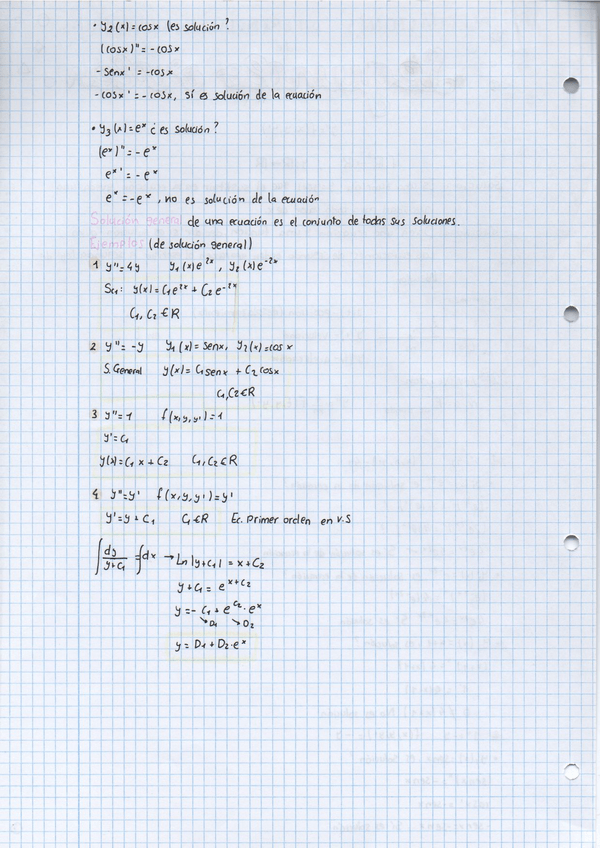 • y₂(x)=cosx ¿es solución?
(cosx)''=-cosx
-senx'=-cosx
-cosx'=-cosx, sí es solución de la ecuación
• y₃(x)=eˣ ¿es solución?
(eˣ)''=-eˣ
eˣ'=-eˣ
eˣ=-eˣ, no es solución de la ecuación
Solución general de una ecuación es el conjunto de todas sus soluciones.
Ejemplos (de solución general)
1 y''=4y y₁(x)e²ˣ, y₂(x)e⁻²ˣ
SG: y(x)=C₁e²ˣ+C₂e⁻²ˣ
C₁, C₂ ∈ R
2 y''=-y y₁(x)=senx, y₂(x)=cosx
S.General y(x)=C₁senx+C₂cosx
C₁,C₂∈R
3 y''=1 f(x,y,y')=1
y'=C₁
y(x)=C₁x+C₂ C₁,C₂∈R
4 y''=y' f(x,y,y')=y'
y'=y+C₁ C₁∈R Ec. Primer orden en V.S
∫dy/y+C₁=∫dx → Ln|y+C₁|=x+C₂
y+C₁=eˣ⁺ᶜ²
y=-C₁+eᶜ²·eˣ
↘D₁ ↘D₂
y=D₁+D₂·eˣ